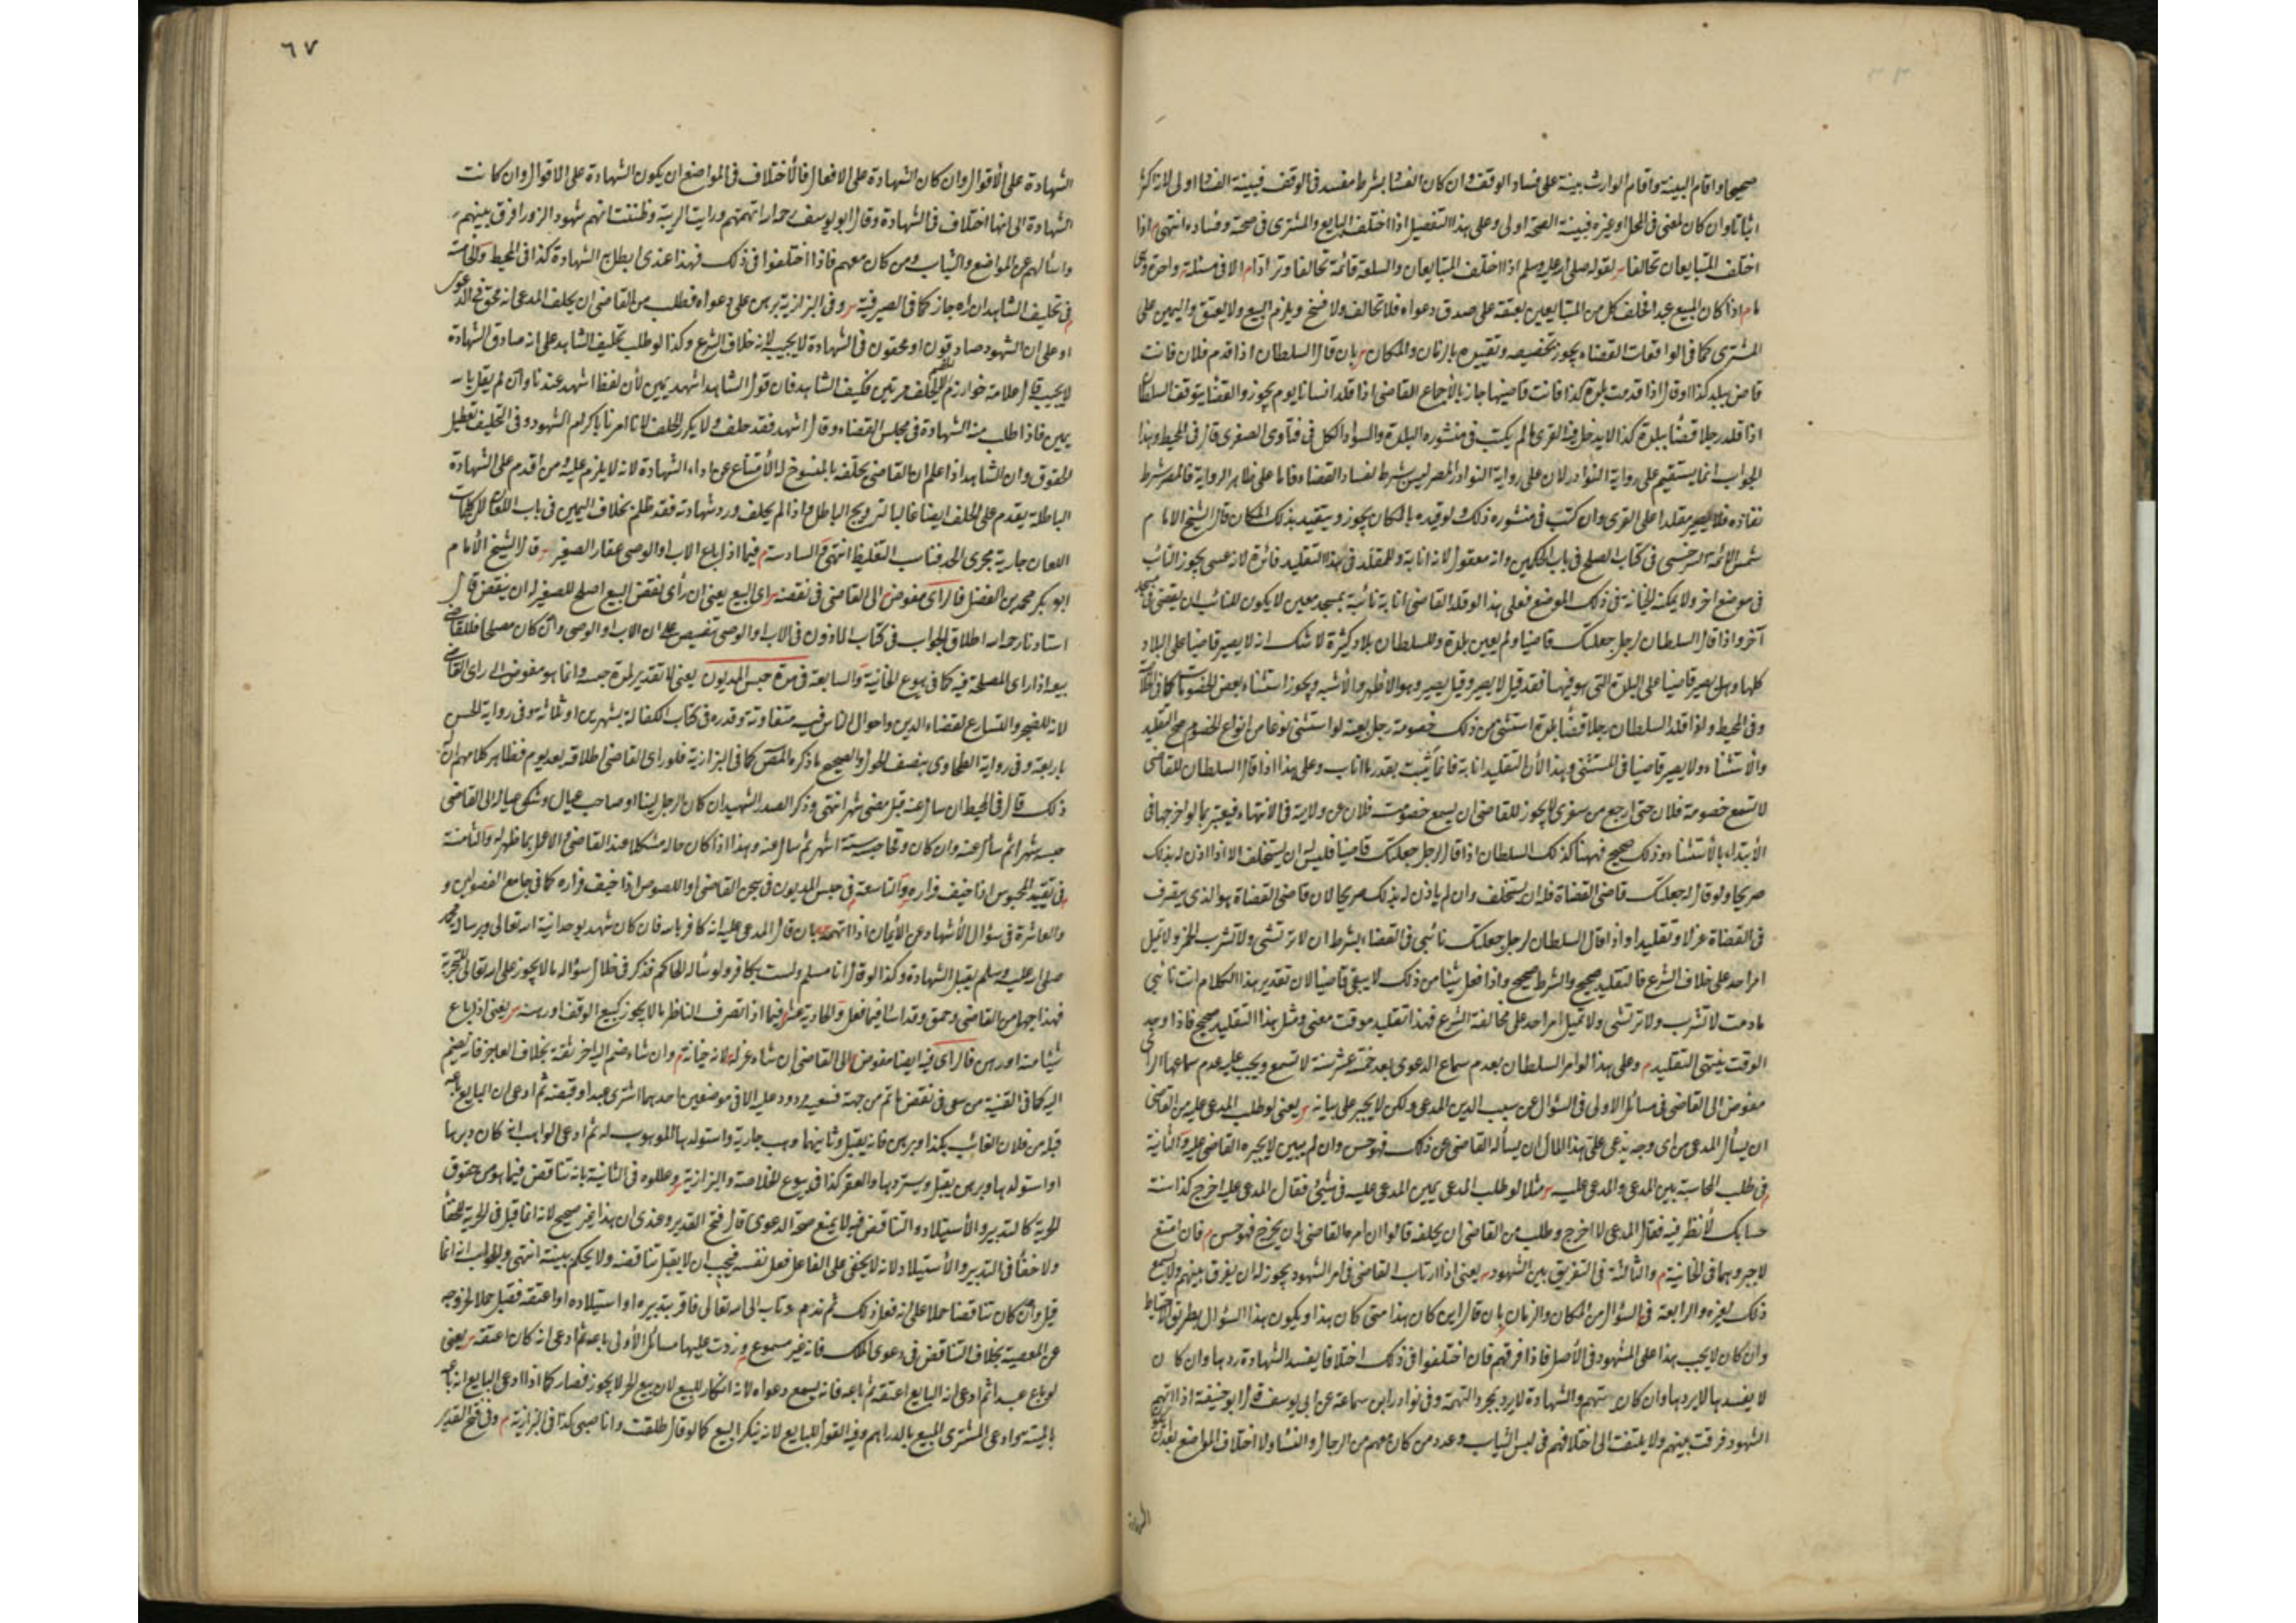 صحيحا واقام البينة واقام الوارث بينة على فساد الوقف وان كان الفساد بشرط مفسد في الوقف فبينة الفساد اولى لانه اكثر
اثباتا وان كان لمعنى في المحل او غيره فبينة الصحة اولى وعلى هذا التفصيل اذا اختلف البايع والمشتري في صحته وفساده انتهى م اذا
اختلف المتبايعان تحالفا لقوله صلى الله عليه وسلم اذا اختلف المتبايعان والسلعة قائمة تحالفا وترادا م الا في مسئلة واحدة وهي
ما م اذا كان المبيع عبدا فحلف كل من المتبايعين بعتقه على صدق دعواه فلا تحالف ولا فسخ ويلزم البيع ولا يعتق واليمين على
المشتري كما في الواقعات القضاء يجوز تخصيصه وتقييده بالزمان والمكان بان قال السلطان اذا قدم فلان فانت
قاض ببلد كذا او قال اذا قدمت بلدة كذا فانت قاضيها جاز بالاجماع القاضي اذا قلد انسانا يوم يجوز والقضا يتوقف السلطان
اذا قلد رجلا قضاء ببلدة كذا لا يدخل فيه القرى ما لم يكتب في منشوره البلدة والسواد الكل في فتاوى الصغرى قال في المحيط وهذا
الجواب انما يستقيم على رواية النوادر لان على رواية النوادر المصر ليس شرط لنفاذ القضاء فاما على ظاهر الرواية فالمصر شرط
نفاذه فلا يصير مقلدا على القرى وان كتب في منشوره ذلك ولو قيده بالمكان يجوز ويتقيد بذلك المكان قال الشيخ الامام
شمس الائمة السرخسي في كتاب الصلح في باب الحكمين وانه معقول لانه انابة وللمقلد في هذا التقليد فائدة لانه عسى يجوز النائب
في موضع اخر ولا يمكنه الخيانة في ذلك الموضع فعلى هذا لو قلد القاضي انابة نائبه بمسجد معين لا يكون للنائب ان يقضي في مسجد
آخر واذا قال السلطان لرجل جعلتك قاضيا ولم يعين بلدة وللسلطان بلاد كثيرة لا شك انه لا يصير قاضيا على البلاد
كلها وهل يصير قاضيا على البلدة التي هو فيها فقد قيل لا يصير وقيل يصير وهو الاظهر والاشبه ويجوز استثناء بعض الخصومات كما في الخلاصة
وفي المحيط ولو اقلد السلطان رجلا قضاء بلدة استثنى من ذلك خصومة رجل بعينه لو استثنى نوعا من انواع الخصوم صح التقليد
والاستثناء ولا يصير قاضيا في المستثنى وهذا لان التقليد انابة فانما يثبت بقدر ما اناب وعلى هذا اذا قال السلطان للقاضي
لا تسمع خصومة فلان حتى ارجع من سفري لا يجوز للقاضي ان يسمع خصومت فلان عن ولاية في الانتهاء فيعتبر بما لو اخرجها في
الابتداء بالاستثناء وذلك صحيح فههنا كذلك السلطان اذا قال لرجل جعلتك قاضيا فليس له ان يستخلف الا اذا اذن له بذلك
صريحا ولو قال له جعلتك قاضي القضاة فله ان يستخلف وان لم ياذن له بذلك صريحا لان قاضي القضاة هو الذي يتصرف
في القضاة عزلا وتقليدا واذا قال السلطان لرجل جعلتك نائبي في القضاء بشرط ان لا ترتشي ولا تشرب الخمر ولا تميل
امر احد على خلاف الشرع فالتقليد صحيح والشرط صحيح واذا فعل شيئا من ذلك لا يبقى قاضيا لان تقدير هذا الكلام انت نائبي
ما دمت لا تشرب ولا ترتشي ولا تميل امر احد على مخالفة الشرع فهذا تقليد موقت معنى ومثل هذا التقليد صحيح فاذا وجد
الوقت ينتهي التقليد م وعلى هذا لو امر السلطان بعدم سماع الدعوى بعد خمسة عشر سنة لا تسمع ويجب عليه عدم سماعها الراي
مفوض الى القاضي في مسائل الاولى في السؤال عن سبب الدين المدعى ولكن لا يجبر على بيانه يعني لو طلب المدعى عليه من القاضي
ان يسأل المدعي من اي وجه يدعي عليه هذا المال ان يسأله القاضي عن ذلك فهو حسن وان لم يبين لا يجبره القاضي عليه والثانية
في طلب المحاسبة بين المدعي والمدعى عليه مثلا لو طلب المدعي يمين المدعى عليه في شئ فقال المدعى عليه اخرج كذا انت
حسابك لانظر فيه فقال المدعي لا اخرج وطلب من القاضي ان يحلفه قالوا ان امره القاضي بان يخرج فهو حسن م فان امتنع
لا يجبر وهما في الخانية م والثالثة في التفريق بين الشهود يعني اذا ارتاب القاضي في امر الشهود يجوز له ان يفرق بينهم ولا يسع
ذلك لغيره والرابعة في السؤال من المكان والزمان بان قال اين كان هذا متى كان هذا ويكون هذا السؤال بطريق الاحتياط
وان كان لا يجب هذا على الشهود في الاصل فاذا فرقهم فان اختلفوا في ذلك اختلافا يفسد الشهادة ردها وان كان
لا يفسدها لا يردها وان كان يتهم والشهادة لا يرد بمجرد التهمة وفي نوادر ابن سماعة عن ابي يوسف قال ابو حنيفة اذا اتهم
الشهود فرقت بينهم ولا يلتفت الى اختلافهم في لبس الثياب وعدد من كان معهم من الرجال والنساء ولا اختلاف المواضع بعد ان يكون
الشهادة
٦٧
الشهادة على الاقوال وان كان الشهادة على الافعال فالاختلاف في المواضع ان يكون الشهادة على الاقوال وان كانت
الشهادة الى انها اختلاف في الشهادة وقال ابو يوسف رحمه الله اذا اتهمتهم ورايت الريبة وظننت انهم شهود الزور افرق بينهم
واسألهم عن المواضع والثياب ومن كان معهم فاذا اختلفوا في ذلك فهذا عندي ابطل به الشهادة كذا في المحيط والخامسة
في تحليف الشاهد ان راه جاز كما في الصيرفية وفي البزازية برهن على دعواه فطلب من القاضي ان يحلف المدعي انه محق في الدعوى
او على ان الشهود صادقون او محقون في الشهادة لا يجيبه لانه خلاف الشرع وكذا لو طلب تحليف الشاهد على انه صادق الشهادة
لا يجيب قال علامة خوارزم الحلف مرتين فكيف الشاهد فان قول الشاهد اشهد يمين لان لفظ اشهد عندنا وان لم يقل بالله
يمين فاذا طلب منه الشهادة في مجلس القضاء وقال اشهد فقد حلف ولا يكرر الحلف لانا امرنا باكرام الشهود وفي التحليف تعطيل
الحقوق وان الشاهد اذا علم ان القاضي يحلفه بالمنسوخ له الامتناع عن اداء الشهادة لانه لا يلزم عليه ومن اقدم على الشهادة
الباطلة يقدم على الحلف ايضا غالبا لترويج الباطل واذا لم يحلف ورد شهادته فقد ظلم بخلاف اليمين في باب اللعان لان كلمات
اللعان جارية مجرى الحد فناسب التغليظ انتهى والسادسة م فيما اذا باع الاب او الوصي عقار الصغير قال الشيخ الامام
ابو بكر محمد بن الفضل فالراي مفوض الى القاضي في نقضه راى البيع يعني ان رأى نقض البيع اصلح للصغير له ان ينقض قال
استاذنا رحمه الله اطلاق الجواب في كتاب الماذون في الاب او الوصي تنصيص على ان الاب او الوصي وان كان مصلحا فللقاضي
بيعه اذا راى المصلحة فيه كما في بيوع الخانية والسابعة في مدة حبس المديون يعني لا تقدير لمدة حبسه وانما هو مفوض الى راي القاضي
لانه للضجر والتسارع لقضاء الدين واحوال الناس فيه متفاوتة وقدره في كتاب الكفالة بشهرين او ثلاثة وفي رواية الحسن
باربعة وفي رواية الطحاوي بنصف الحول والصحيح ما ذكره المصنف كما في البزازية فلو راى القاضي اطلاقه بعد يوم فظاهر كلامهم ان له
ذلك قال في المحيط ان سال عنه قبل مضي شهر انتهى وذكر الصدر الشهيد ان كان الرجل لينا او صاحب عيال وشكى عياله الى القاضي
حبسه شهرا ثم سأل عنه وان كان وقحا حبسه ستة اشهر ثم سال عنه وهذا اذا كان حاله مشكلا عند القاضي والا عمل بما ظهر له والثامنة
في تقييد المحبوس اذا خيف فراره والتاسعة في حبس المديون في سجن القاضي او اللصوص اذا خيف فراره كما في جامع الفصولين و
والعاشرة في سؤال الاشهاد عن الايمان اذا اتهمه بان قال المدعى عليه انه كافر بالله فان كان شهد بوحدانية الله تعالى وبرسالة محمد
صلى الله عليه وسلم يقبل الشهادة وكذا لو قال انا مسلم ولست بكافر ولو سأله الحاكم فذكر في خلال سؤاله ما لا يجوز على الله تعالى للتجربة
فهذا جهل من القاضي وحمق وقد اساء فيما فعل والحادية عشر فيما اذا تصرف الناظر بما لا يجوز كبيع الوقف او رهنه يعني اذا باع
شيئا منه او رهن فالراي فيه ايضا مفوض الى القاضي ان شاء عزله لانه خيانة م وان شاء ضم اليه اخر ثقة بخلاف العاجز فانه يضم
اليه كما في القنية من سعى في نقض ما تم من جهته فسعيه مردود عليه الا في موضعين احدهما اشترى عبدا وقبضه ثم ادعى ان البايع باعه
قبله من فلان الغائب بكذا وبرهن فانه يقبل وثانيهما وهب جارية واستولدها الموهوب له ثم ادعى الواهب انه كان دبرها
او استولدها وبرهن يقبل ويستردها والعقر كذا في بيوع الخلاصة والبزازية وعللوه في الثانية بانه تناقض فيما هو من حقوق
الحرية كالتدبير والاستيلاد والتناقض فيه لا يمنع صحة الدعوى قال فتح القدير وعندي ان هذا غير صحيح لانه انما قبل في الحرية للخفاء
ولا خفاء في التدبير والاستيلاد لانه لا يخفى على الفاعل فعل نفسه فيجب ان لا يقبل تناقضه ولا يحكم ببينته انتهى والجواب انه انما
قبل وان كان تناقضا حملا على انه فعل ذلك ثم ندم وتاب الى الله تعالى فاقر بتدبيره او استيلاده او اعتقه فقبل حملا لخروجه
عن المعصية بخلاف التناقض في دعوى الملك فانه غير مسموع وزدت عليها مسائل الاولى باعه ثم ادعى انه كان اعتقه يعني
لو باع عبدا ثم ادعى انه البايع اعتقه ثم باعه فانه يسمع دعواه لانه انكار للبيع لان بيع الحر لا يجوز فصار كما اذا ادعى البايع انه باعه
بالميتة وادعى المشتري المبيع بالدراهم وفيه القول للبايع لانه ينكر البيع كما لو قال طلقت وانا صبي كذا في البزازية م وفي فتح القدير